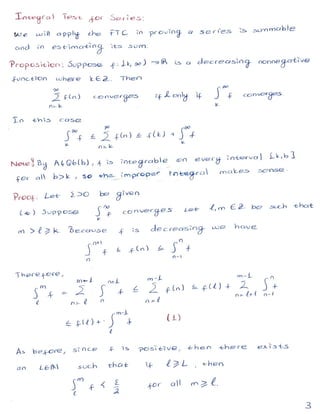 Integral Test for Series:
We will apply the FTC in proving a series is summable
and in estimating its sum.
Proposition: Suppose f: [k, ∞) → ℝ is a decreasing nonnegative
function where k∈ℤ. Then
∞
∑ f(n) converges if & only if ∫_k^∞ f converges
n=k
In this case
∫_k^∞ f ≤ ∑_{n=k}^∞ f(n) ≤ f(k) + ∫_k^∞ f
Note: By A6Q6(b), f is integrable on every interval [k,b]
for all b>k, so the improper integral makes sense.
Proof. Let ε>0 be given
(⇐) Suppose ∫_k^∞ f converges Let ℓ,m ∈ ℤ be such that
m > ℓ ≥ k. Because f is decreasing we have
∫_n^{n+1} f ≤ f(n) ≤ ∫_{n-1}^n f
Therefore,
∫_ℓ^m f = ∑_{n=ℓ}^{m-1} ∫_n^{n+1} f ≤ ∑_{n=ℓ}^{m-1} f(n) ≤ f(ℓ) + ∑_{n=ℓ+1}^{m-1} ∫_{n-1}^n f
≤ f(ℓ) + ∫_ℓ^{m-1} f (1)
As before, since f is positive, then there exists
an L∈ℕ such that if ℓ ≥ L, then
∫_ℓ^m f < ε/2 for all m ≥ ℓ.
3